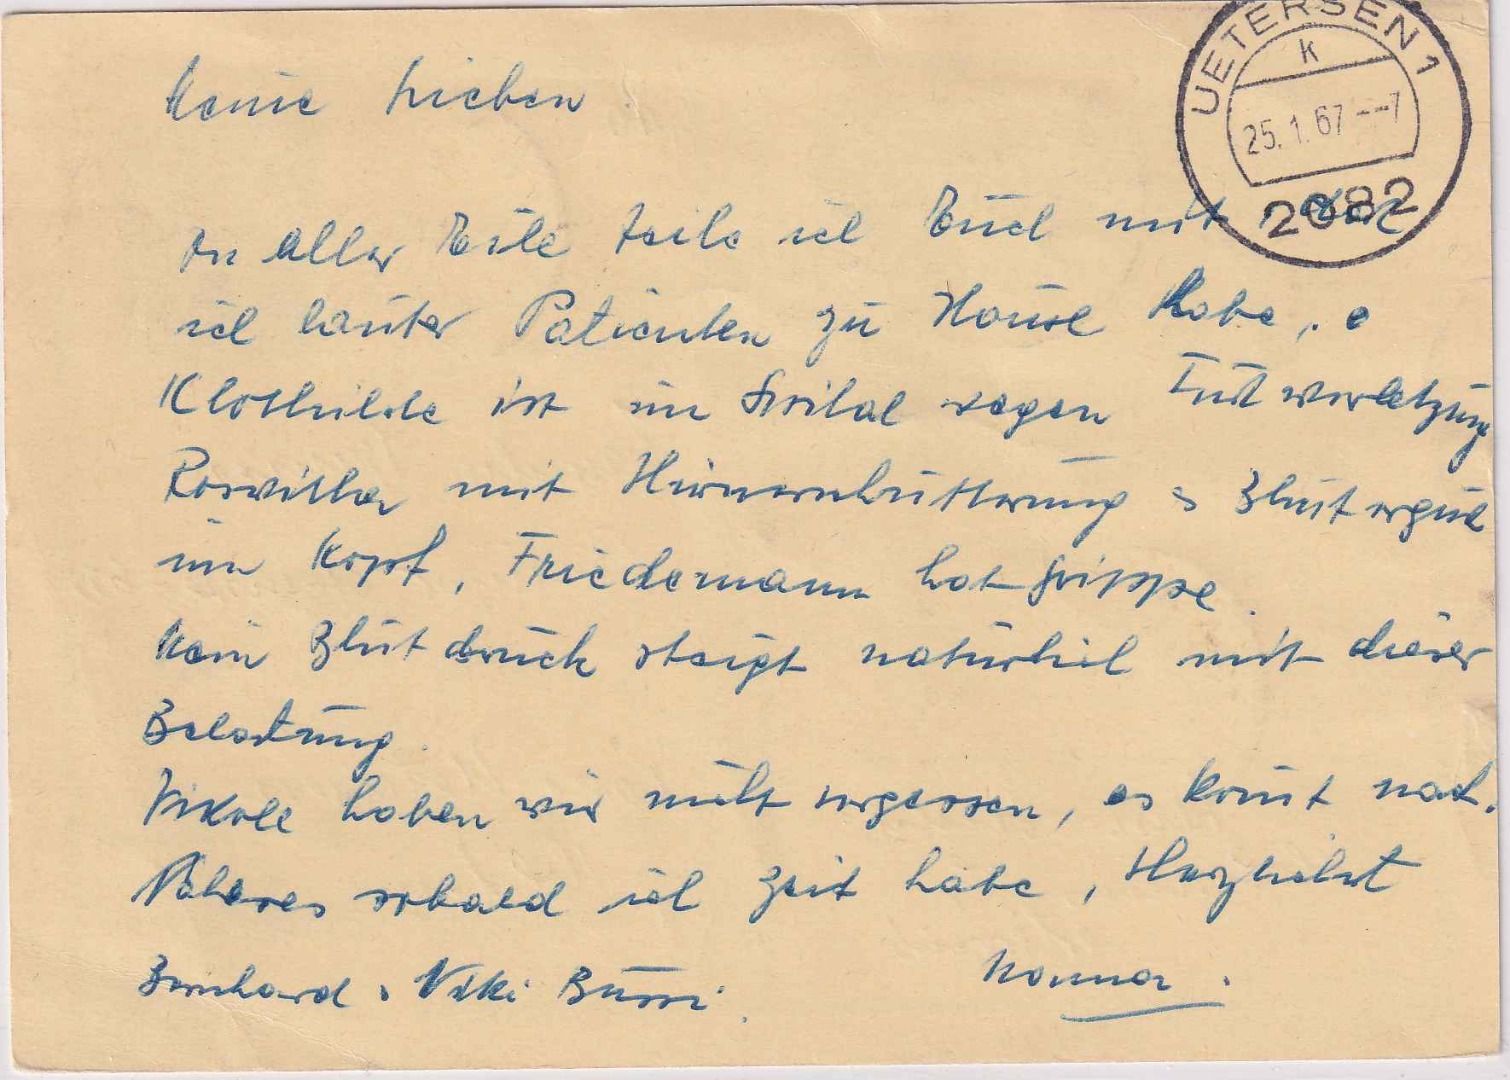 UETERSEN 1
k
25.1.67--7
2082
Meine Lieben
in aller Eile teile ich Euch mit, daß
ich lauter Patienten zu Hause habe,
Klothilde ist im Spital wegen Fußverletzung
Roswitha mit Hirnerschütterung & Bluterguß
im Kopf, Friedemann hat Grippe.
Mein Blutdruck steigt natürlich mit dieser
Belastung.
Nikole haben wir nicht vergessen, es komt nach.
Näheres sobald ich Zeit habe, Herzlichst
Bernhard & Niki Bussi.